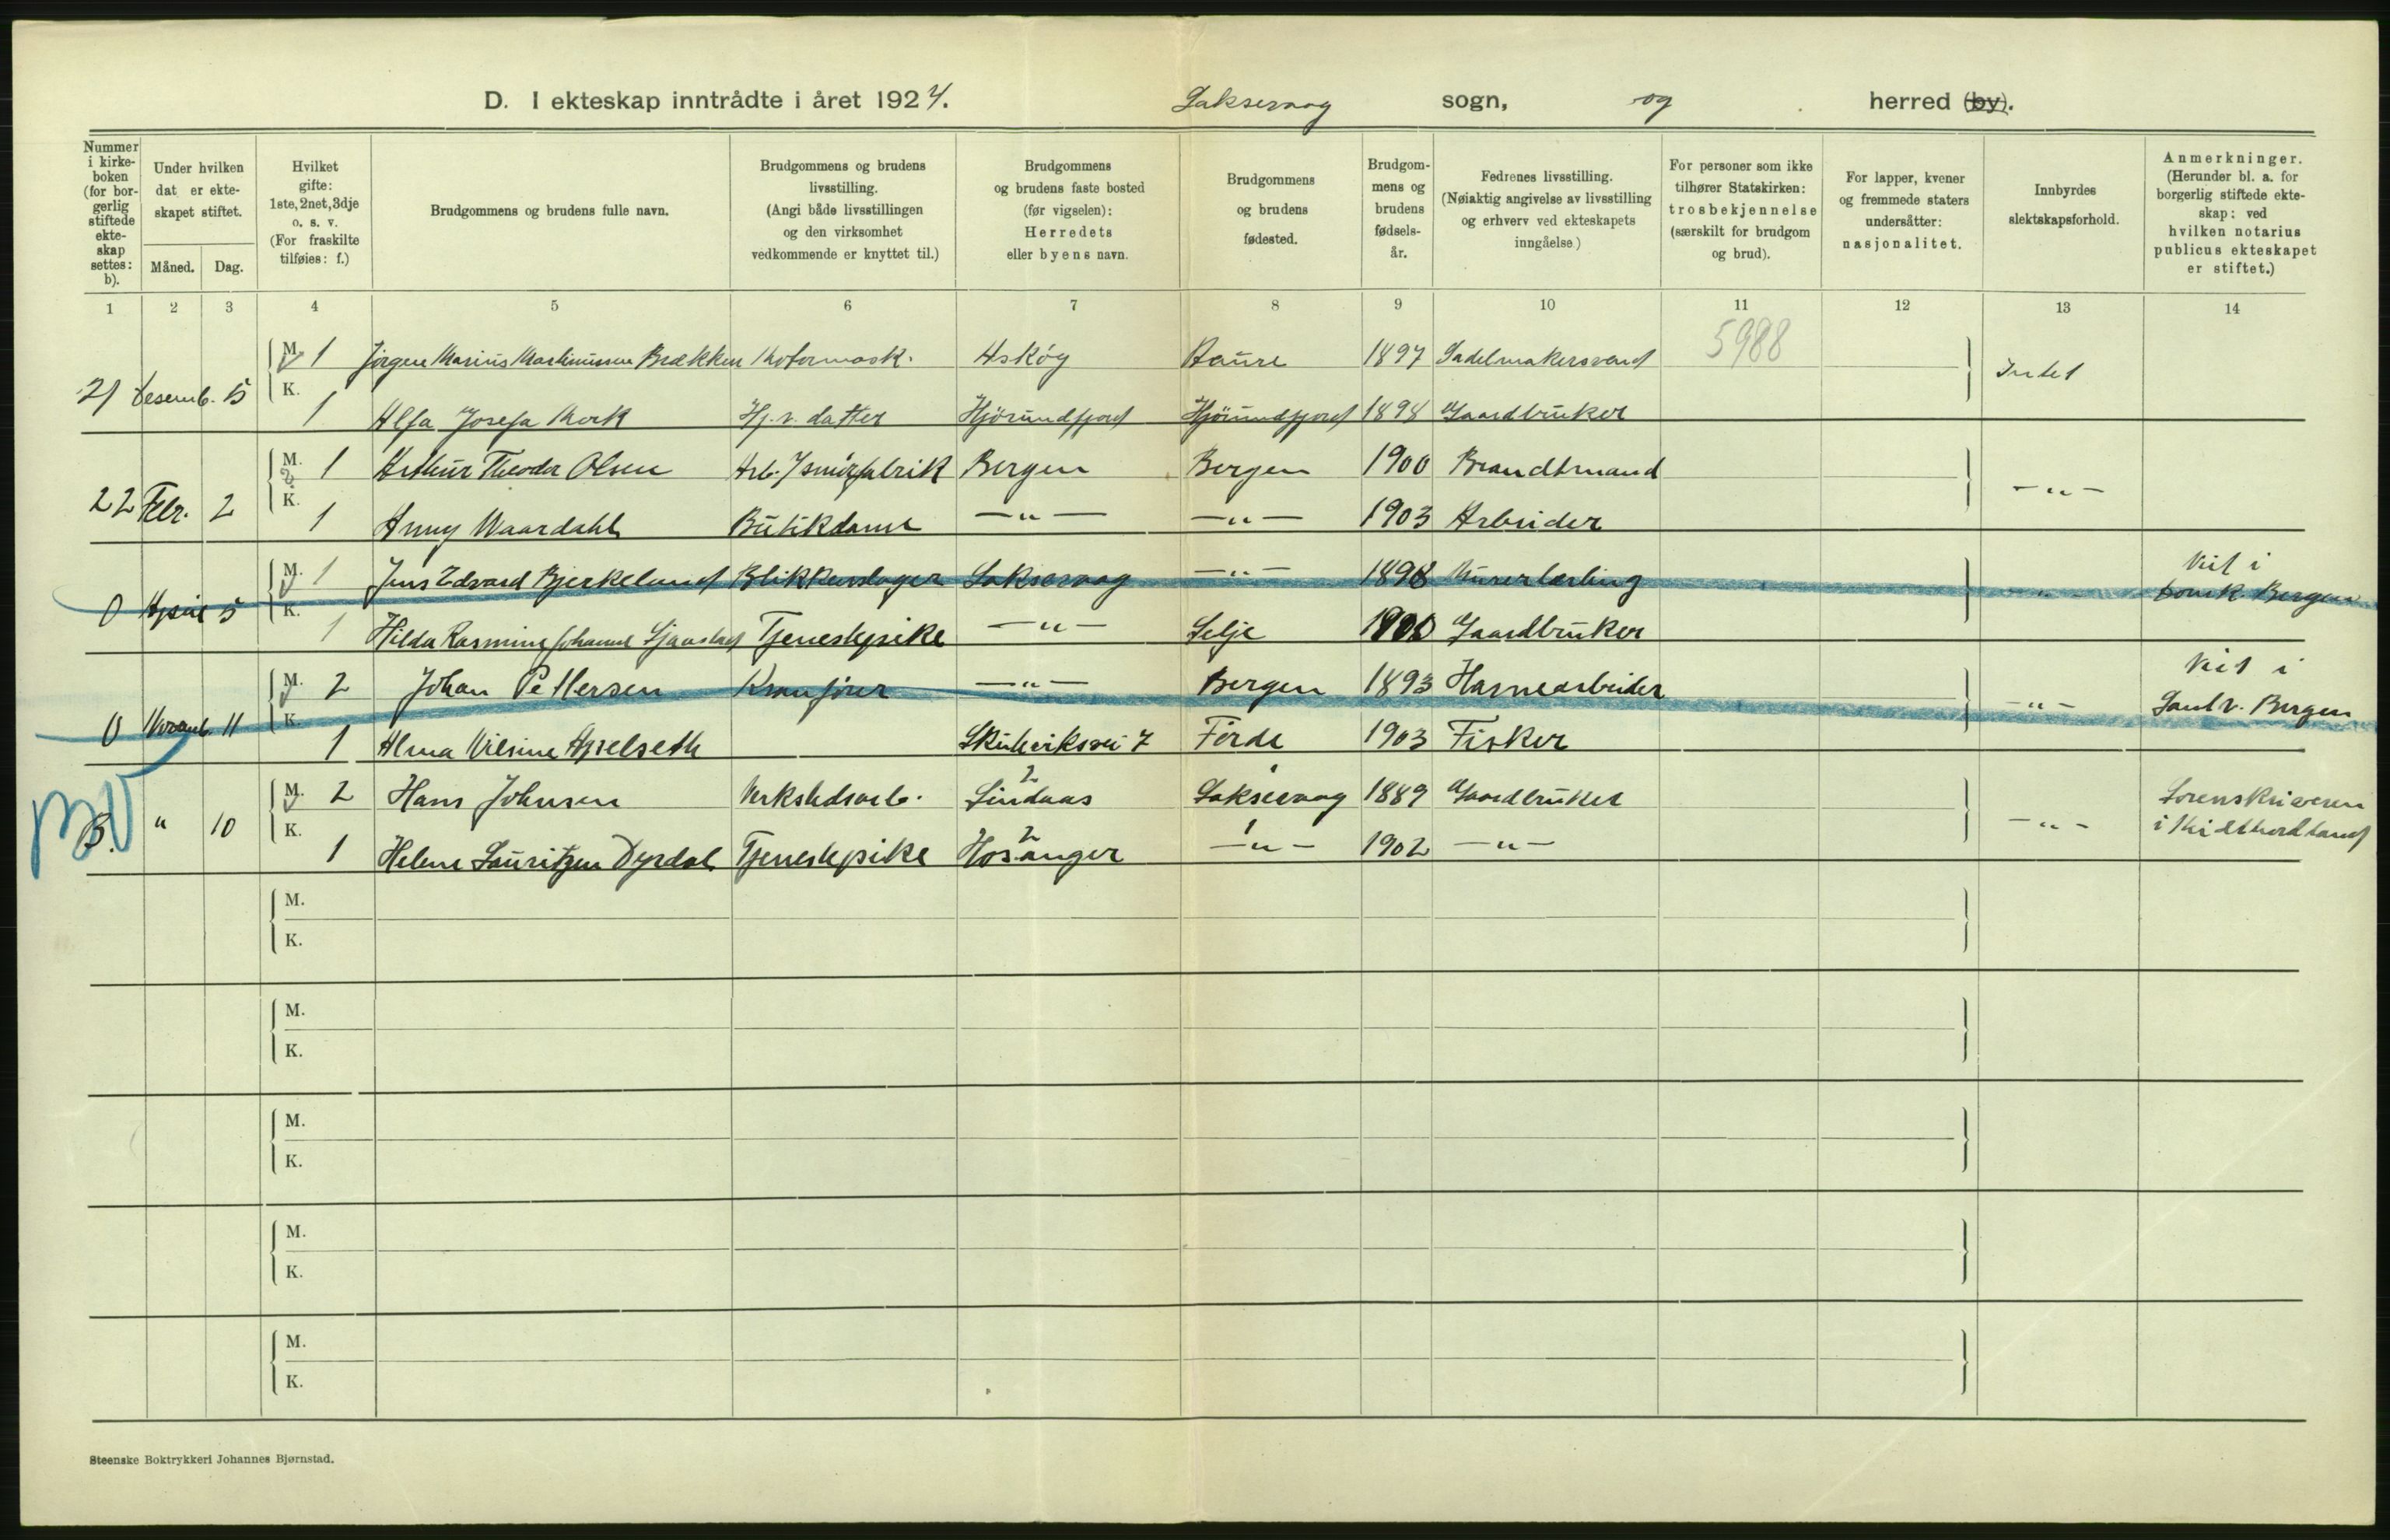 D. I ekteskap inntrådte i året 1924. Laksevaag sogn, og herred (by).
Nummer i kirkeboken (for borgerlig stiftede ekteskap settes: b).
Under hvilken dat er ekteskapet stiftet.
Måned. Dag.
Hvilket gifte: 1ste, 2net, 3dje o. s. v. (For fraskilte tilføies: f.)
Brudgommens og brudens fulle navn.
Brudgommens og brudens livsstilling. (Angi både livsstillingen og den virksomhet vedkommende er knyttet til.)
Brudgommens og brudens faste bosted (før vigselen): Herredets eller byens navn.
Brudgommens og brudens fødested.
Brudgommens og brudens fødselsår.
Fedrenes livsstilling. (Nøiaktig angivelse av livsstilling og erhverv ved ekteskapets inngåelse)
For personer som ikke tilhører Statskirken: trosbekjennelse (særskilt for brudgom og brud).
For lapper, kvener og fremmede staters undersåtter: nasjonalitet.
Innbyrdes slektskapsforhold.
Anmerkninger. (Herunder bl. a. for borgerlig stiftede ekteskap: ved hvilken notarius publicus ekteskapet er stiftet.)
1 2 3 4 5 6 7 8 9 10 11 12 13 14
5988
M. 1 Jörgen Marius Martinussen Brækken Motormask. Askøy Aure 1897 Sadelmakersvend
21 Desemb. 15 Intet
K. 1 Alfa Josefa Mork Hj. v. datter Hjörundfjord Hjörundfjord 1898 Gaardbruker
M. 1 Arthur Theodor Olsen Arb. i smörfabrik Bergen Bergen 1900 Brandtmand
22 Febr. 2 — " —
K. 1 Anny Waardahl Butikdame — " — — " — 1903 Arbeider
M. 1 Jens Edvard Bjerkelund Blikkenslager Laksevaag — " — 1898 Murerlærling Viet i
0 April 5 " Domk Bergen
K. 1 Hilda Rasmine Johanne Tjenestepike — " — Selje 1900 Gaardbruker
M. 2 Johan Pettersen Kranfører — " — Bergen 1893 Havnearbeider Viet i
0 Novemb. 11 — " — Sandv. Bergen
K. 1 Alma Vilsine Apselseth Skuteviksvei 7 Förde 1903 Fisker
M. 2 Hans Johnsen Verkstedsarb. Lindaas 2 Laksevaag 1889 Gaardbruker Sorenskriveren
B. " 10 — " — i Midthordland
K. 1 Helene Lauritzen Dyrdal Tjenestepike Hosanger 2 — " — 1902 — " —
M.
K.
M.
K.
M.
K.
M.
K.
M.
K.
Steenske Boktrykkeri Johannes Bjørnstad.